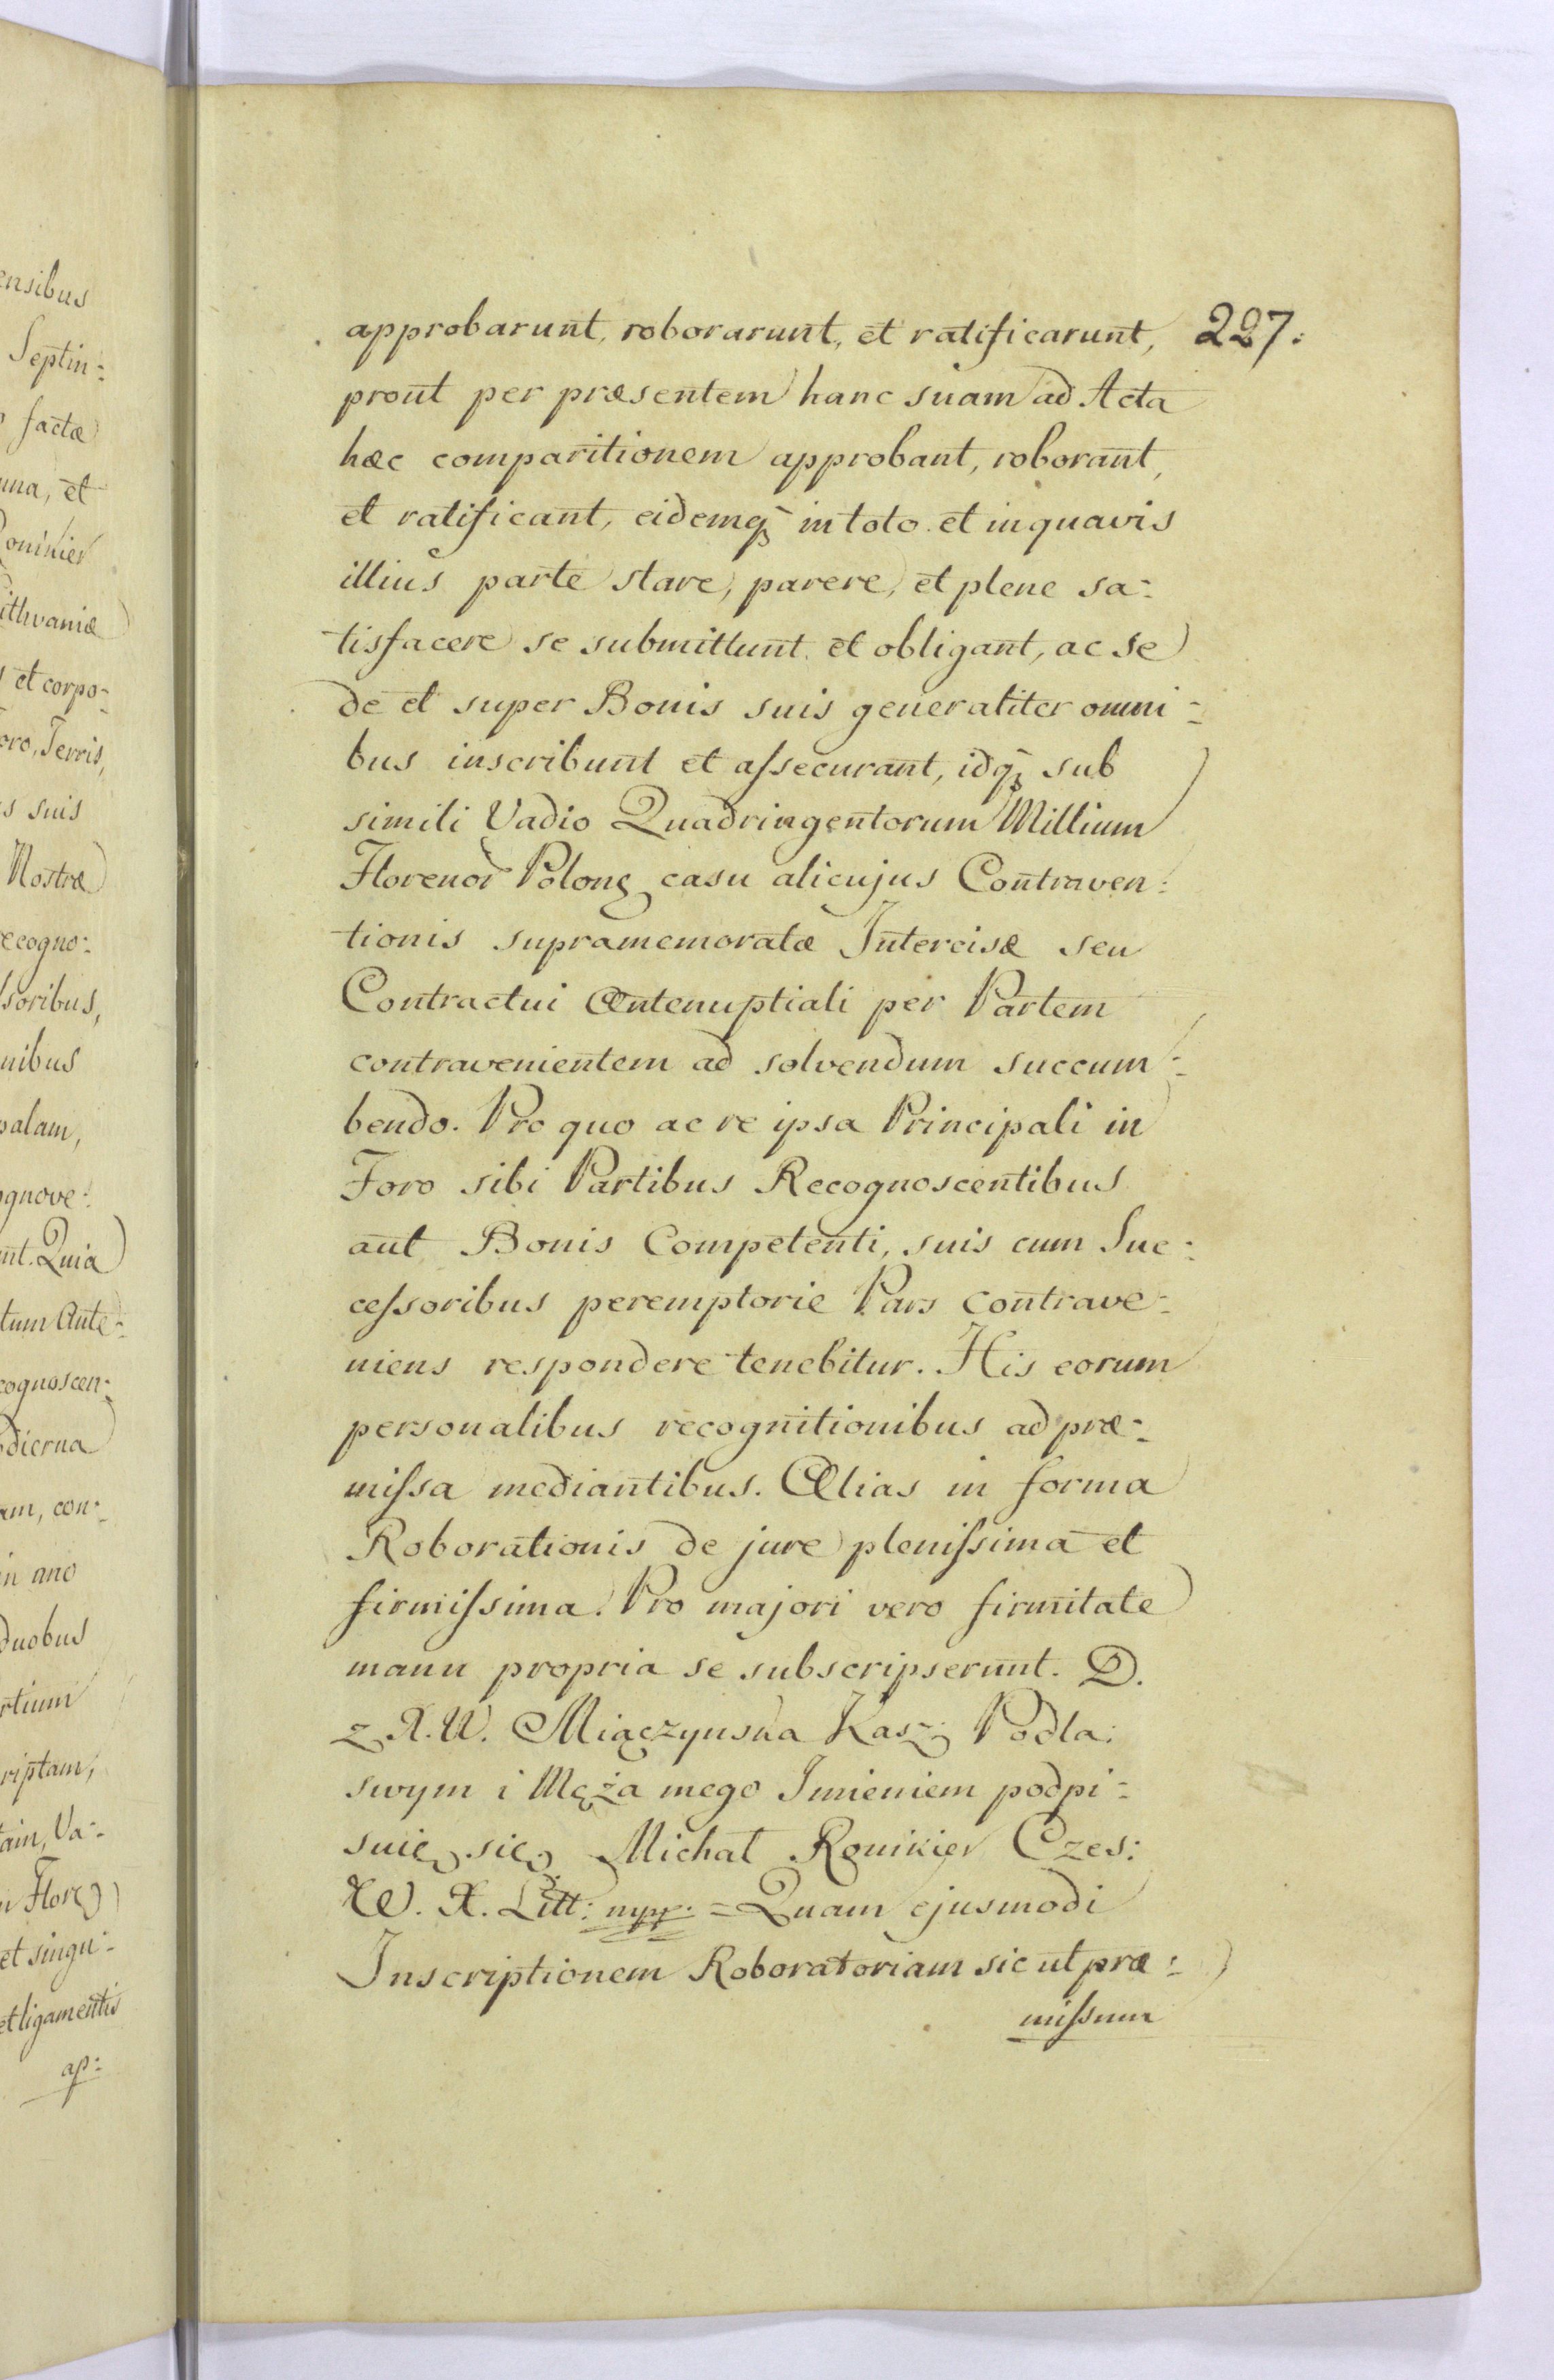 ensibus
Septin-
factæ
una, et
onikier
ithvaniæ
et corpo-
oro, Terris,
s suis
Nostræ
ecogno-
soribus,
nibus
palam,
gnove-
nt. Quia
tum Ante-
cognoscen-
dierna
am, con-
in ano
duobus
rtium
riptam,
tam, Va-
et singu-
et ligamentis
ap:
227:
approbarunt, roborarunt, et ratificarunt,
prout per præsentem hanc suam ad Acta
hæc comparitionem approbant, roborant,
et ratificant, eidemq3 in toto et in quavis
illius parte stare, parere, et plene sa-
tisfacere se submittunt et obligant, ac se
de et super Bonis suis generaliter omni-
bus inscribunt et aſsecurant, idq3 sub
simili Vadio Quadringentorum Millium
Florenor Polong casu alicujus Contraven-
tionis supramemoratæ Intercisæ seu
Contractui Antenuptiali per Partem
contravenientem ad solvendum succum-
bendo. Pro quo ac re ipsa Principali in
Foro sibi Partibus Recognoscentibus
aut Bonis Competenti, suis cum Suc-
ceſsoribus peremptorie Pars contrave-
niens respondere tenebitur. His eorum
personalibus recognitionibus ad præ-
miſsa mediantibus. Alias in forma
Roborationis de jure pleniſsima et
firmiſsima. Pro majori vero firmitate
manu propria se subscripserunt. D.
z X. W. Miączynska Kasz: Podla:
swym i Męża mego Imieniem podpi-
suię się Michał Ronikier Czes:
W. X. Litt: mpp. = Quam ejusmodi
Inscriptionem Roboratoriam sic ut præ-
miſsum